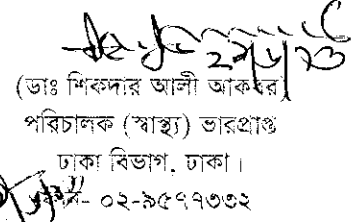 (ডাঃ শিকদার আলী আকবর)
পরিচালক (স্বাস্থ্য) ভারপ্রাপ্ত
ঢাকা বিভাগ, ঢাকা।
ফোন- ০২-৯৫৭৭৩৩২